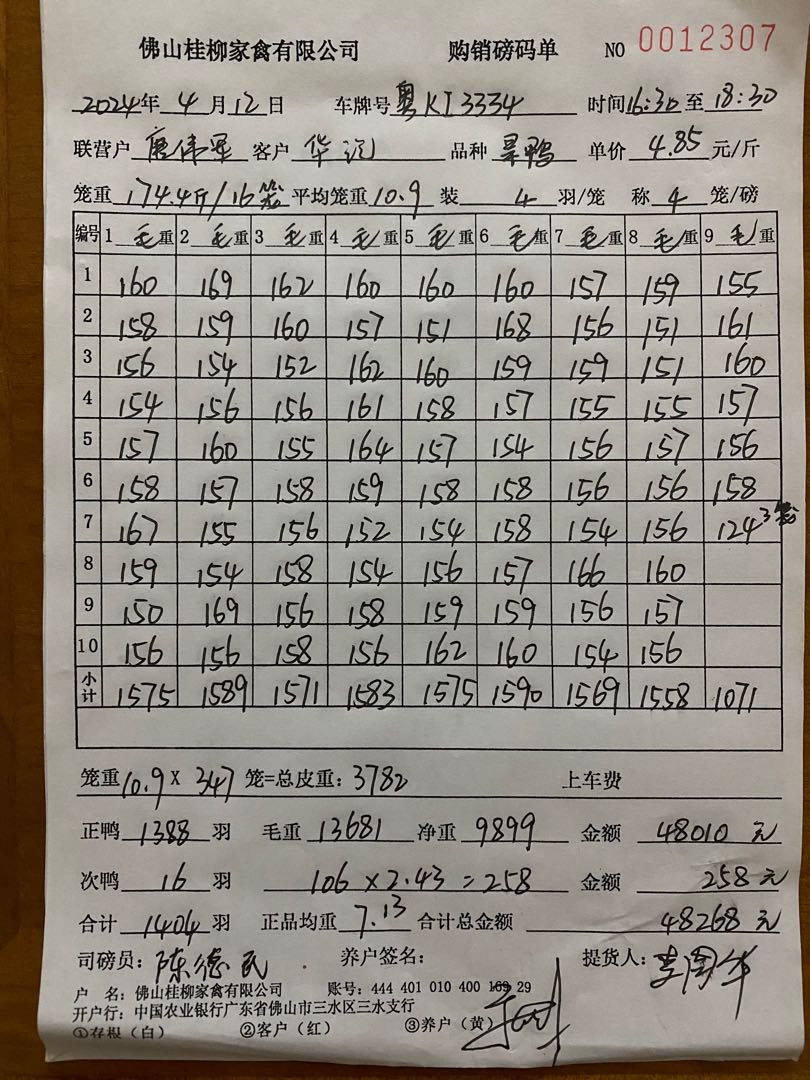 佛山桂柳家禽有限公司 购销磅码单 NO 0012307
2024年 4月12日 车牌号 粤KI3334 时间16:30至18:30
联营户 唐伟星 客户 华润 品种 旱鸭 单价 4.85 元/斤
笼重 174.4斤/16笼 平均笼重 10.9 装 4 羽/笼 称 4 笼/磅
编号 1 毛 重 2 毛 重 3 毛 重 4 毛 重 5 毛 重 6 毛 重 7 毛 重 8 毛 重 9 毛 重
1 160 169 162 160 160 160 157 159 155
2 158 159 160 157 151 168 156 151 161
3 156 154 152 162 160 159 159 151 160
4 154 156 156 161 158 157 155 155 157
5 157 160 155 164 157 154 156 157 156
6 158 157 158 159 158 158 156 156 158
7 167 155 156 152 154 158 154 156 124 3笼
8 159 154 158 154 156 157 166 160
9 150 169 156 158 159 159 156 157
10 156 156 158 156 162 160 154 156
小计 1575 1589 1571 1583 1575 1590 1569 1558 1071
笼重 10.9 X 347 笼=总皮重: 3782 上车费
正鸭 1388 羽 毛重 13681 净重 9899 金额 48010 元
次鸭 16 羽 106 × 2.43 = 258 金额 258 元
合计 1404 羽 正品均重 7.13 合计总金额 48268 元
司磅员: 陈德民 养户签名: 提货人: 李周华
户 名: 佛山桂柳家禽有限公司 账号: 444 401 010 400 169 29
开户行: 中国农业银行广东省佛山市三水区三水支行
①存根（白） ②客户（红） ③养户（黄）